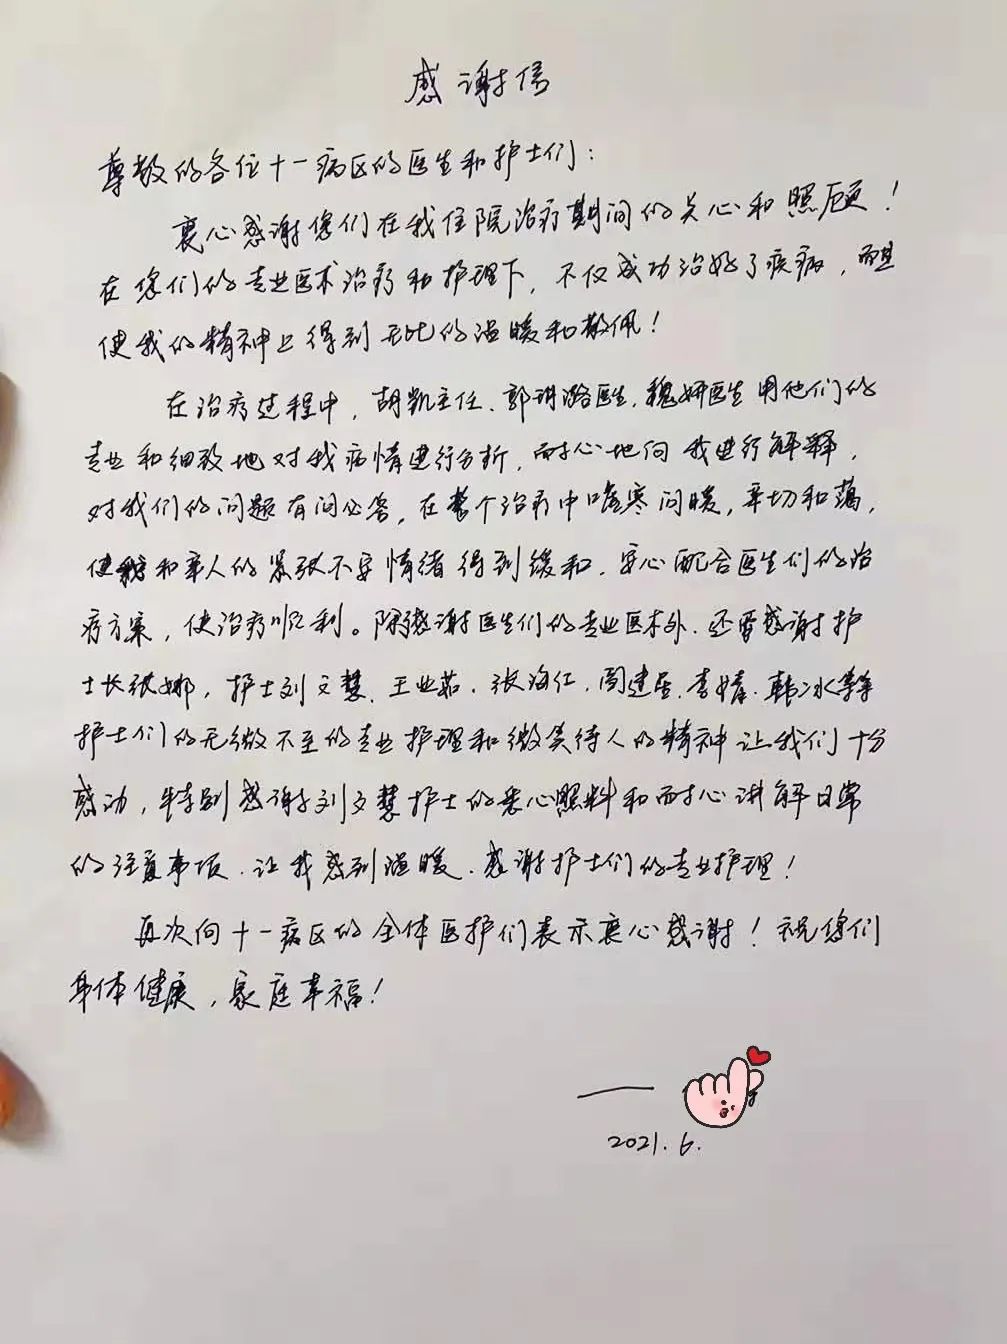 感谢信
尊敬的各位十一病区的医生和护士们：
衷心感谢您们在我住院治疗期间的关心和照顾！
在您们的专业医术治疗和护理下，不仅成功治好了疾病，而且
使我的精神上得到无比的温暖和敬佩！
在治疗过程中，胡凯主任、郭琪潞医生、魏妍医生用他们的
专业和细致地对我病情进行分析，耐心地向我进行解释，
对我们的问题有问必答，在整个治疗中嘘寒问暖，亲切和蔼，
使我和亲人的紧张不安情绪得到缓和，安心配合医生们的治
疗方案，使治疗顺利。除感谢医生们的专业医术外，还要感谢护
士长张娜，护士刘文慧、王业茹、张海仁、李婧、韩冰等等
护士们的无微不至的专业护理和微笑待人的精神让我们十分
感动，特别感谢刘文慧护士的悉心照料和耐心讲解日常
的注意事项，让我感到温暖，感谢护士们的专业护理！
再次向十一病区的全体医护们表示衷心感谢！祝您们
身体健康，家庭幸福！
2021.6.